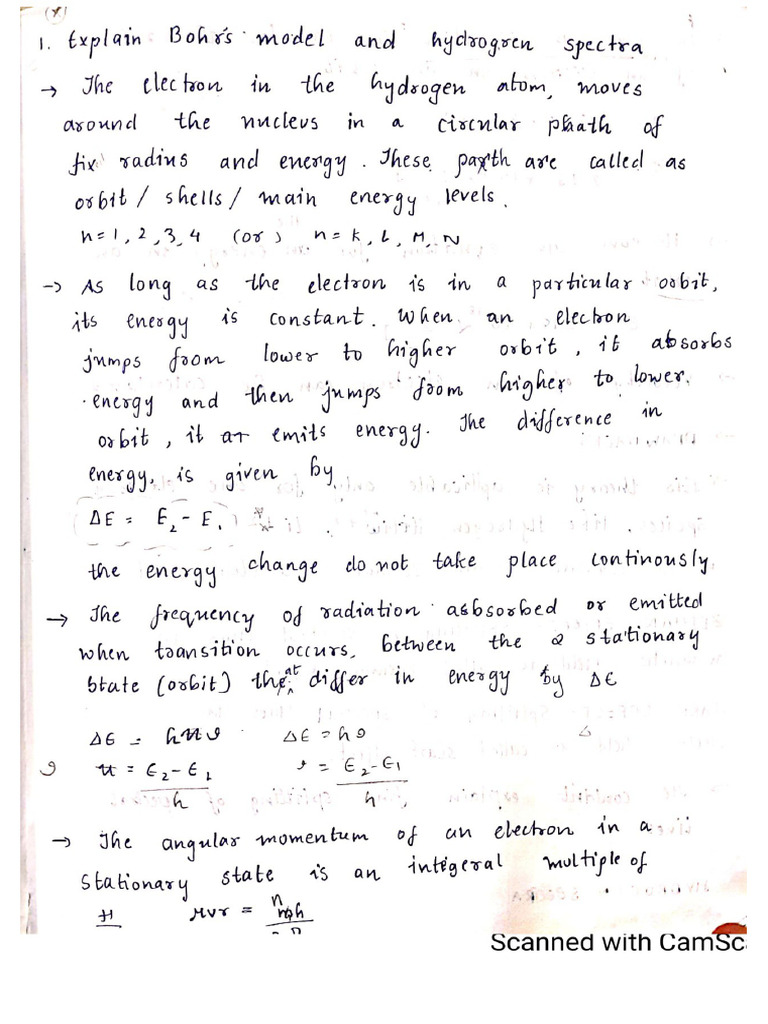 (x)
1. Explain Bohr's model and hydrogren spectra
→ The electron in the hydrogen atom, moves
around the nucleus in a circular phath of
fix radius and energy. These parth are called as
orbit / shells / main energy levels.
n=1, 2, 3, 4 (or) n = K, L, M, N
→ As long as the electron is in a particular orbit,
its energy is constant. When an electron
jumps from lower to higher orbit, it absorbs
energy and then jumps from higher to lower.
orbit, it at emits energy. The difference in
energy, is given by
ΔE = E₂ - E₁
the energy change do not take place continously
→ The frequency of radiation asbsorbed or emitted
when transition occurs, between the 2 stationary
state (orbit) that differ in energy by ΔE
ΔE = hν ΔE = hν
ν = E₂-E₁ / h ν = E₂-E₁ / h
→ The angular momentum of an electron in a
stationary state is an integeral multiple of
mvr = nh
Scanned with CamSc